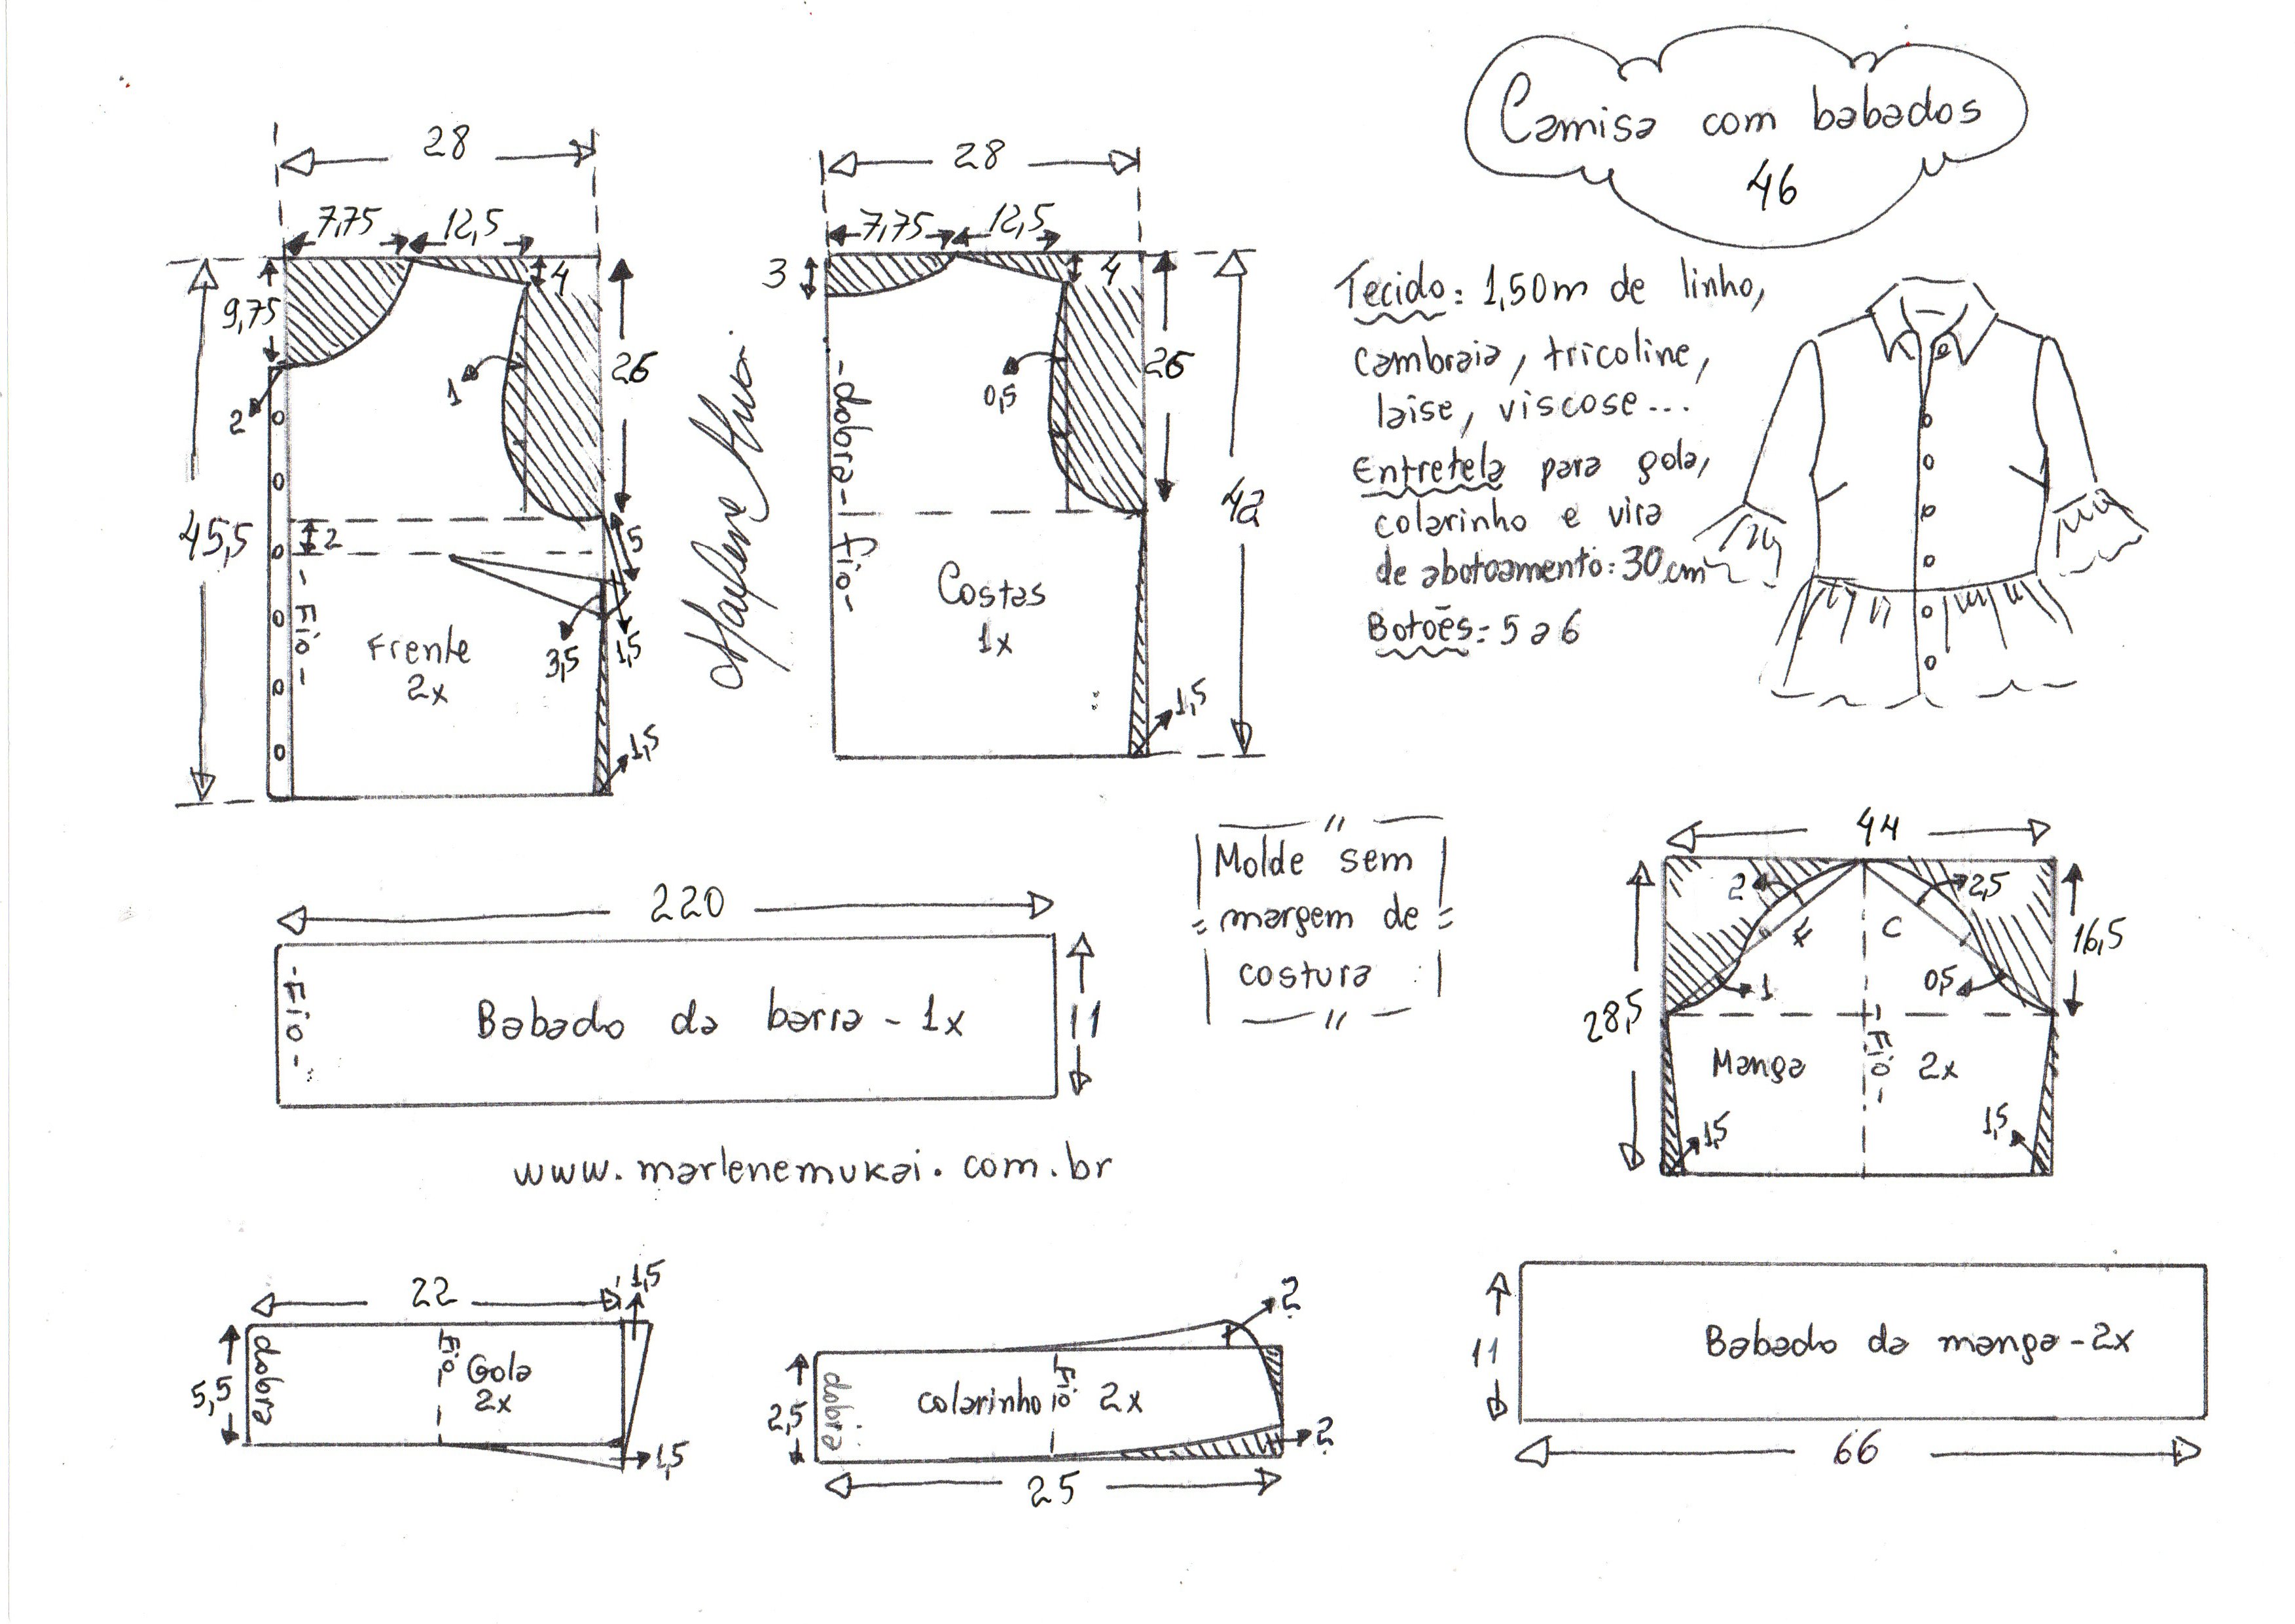 Camisa com babados
46
28
7,75
12,5
4
9,75
2
1
26
45,5
2
5
3,5
1,5
1,5
-Fio-
Frente
2x
28
7,75
12,5
3
4
0,5
26
42
-dobra- fio-
Costas
1x
1,5
Tecido: 1,50m de linho,
cambraia, tricoline,
laise, viscose...
Entretela para gola,
colarinho e vira
de abotoamento: 30cm
Botões: 5 a 6
220
-Fio-
Babado da barra - 1x
11
Molde sem
margem de
costura
44
2
2,5
F
C
16,5
1
0,5
28,5
Manga
Fio-
2x
1,5
1,5
www.marlenemukai.com.br
22
1,5
5,5
dobra
Fio
Gola
2x
1,5
2
2,5
dobra
colarinho
Fio
2x
2
25
11
Babado da manga - 2x
66